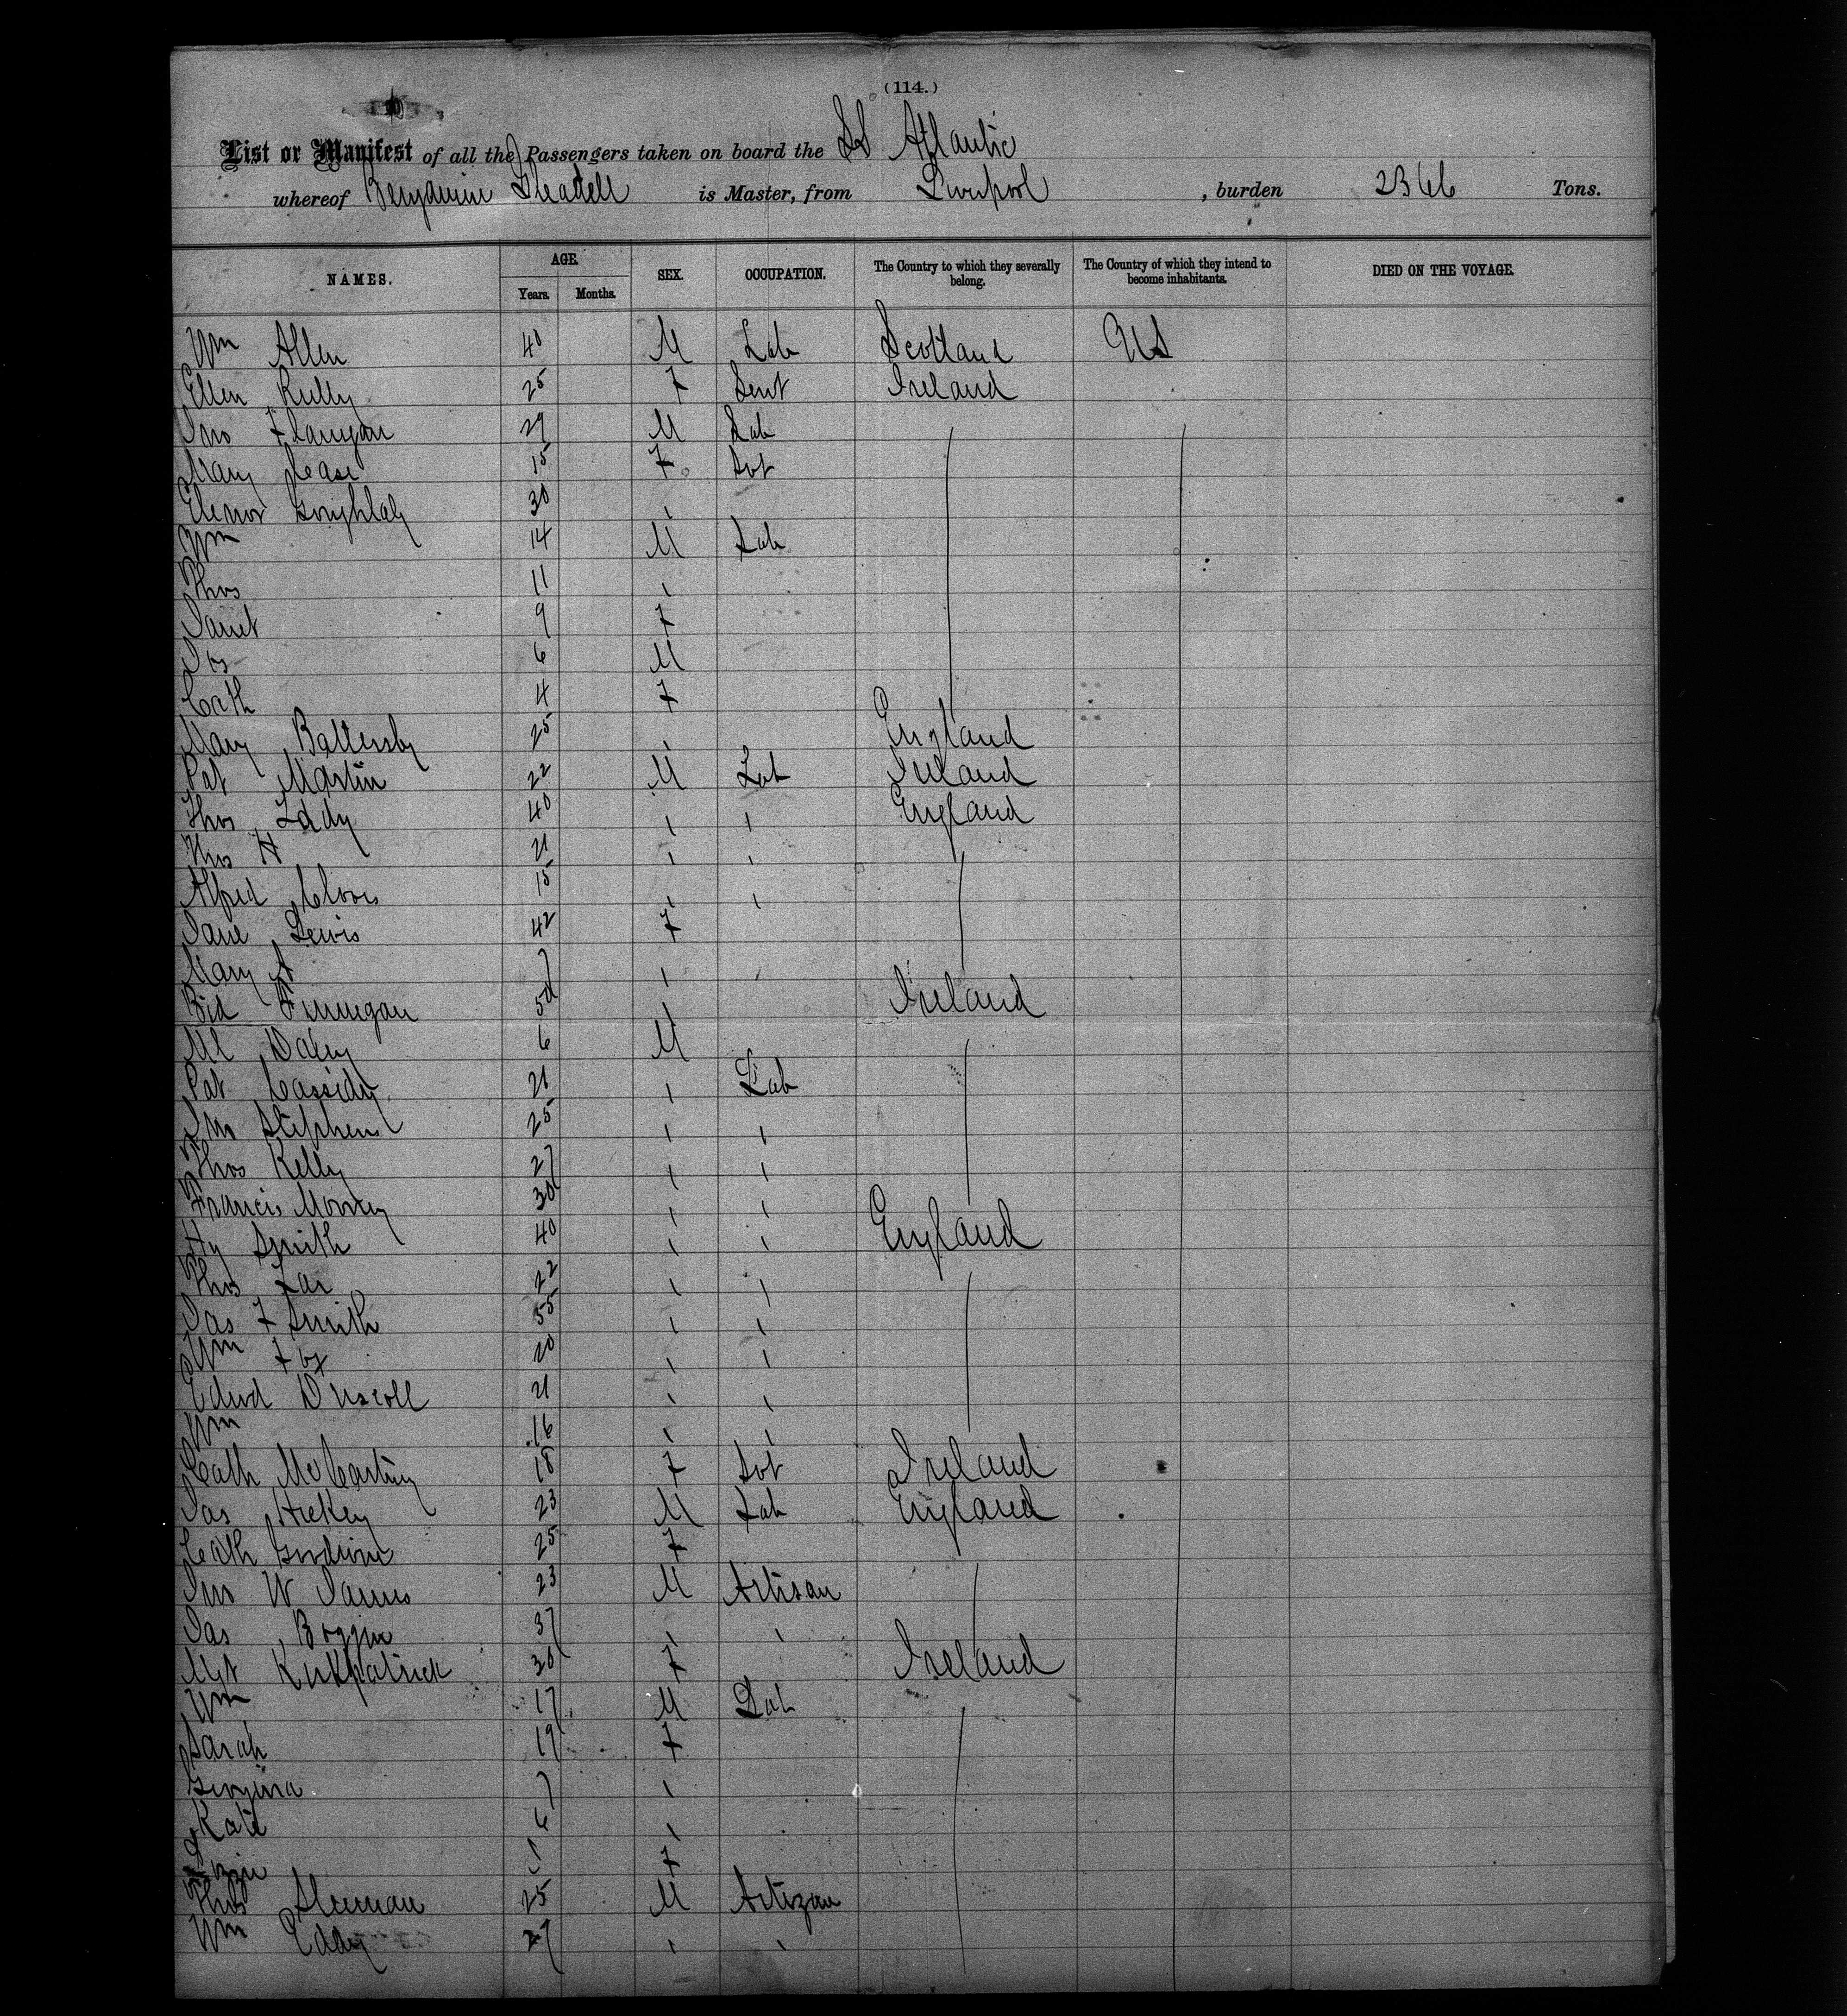 (114.)
List or Manifest of all the Passengers taken on board the SS Atlantic
whereof Benjamin Gleadell is Master, from Liverpool, burden 2366 Tons.
NAMES. AGE. SEX. OCCUPATION. The Country to which they severally belong. The Country of which they intend to become inhabitants. DIED ON THE VOYAGE.
Years. Months.
Wm Allen 40 M Lab Scotland US
Ellen Reilly 25 F Servt Ireland
Jno Flanigan 29 M Lab
Mary Pease 15 F Svt
Elenor 30 "
Wm 14 M Lab
Thos 11 "
Janet 9 F
Jos 6 M
Cath 4 F
Mary Battersby 25 " England
Pat Martin 22 M Lab Ireland
Thos Eddy 40 " " England
Thos H 21 " "
Alfred 15 " "
Jane Lewis 42 F
Mary A 7 "
Bid Finnigan 50 " Ireland
Ml Daley 6 M
Pat Cassidy 21 " Lab
Jno Stephens 25 " "
Thos Kelly 27 " "
Francis 30 " "
Hy Smith 40 " " England
Thos 22 " "
Jas F Smith 55 " "
Wm Fox 20 " "
Edwd Driscoll 21 " "
Wm 16 " "
Cath McCarthy 18 F Svt Ireland
Jas Hickey 23 M Lab England
Cath 25 F
Jno W James 23 M Artisan
Jas 37 " "
Mgt Kirkpatrick 30 F Ireland
Wm 17 M Lab
Sarah 19 F
Georgina 7 "
Kate 6 "
F
Thos Sleeman 25 M Artizan
Wm Eddy 27 " "